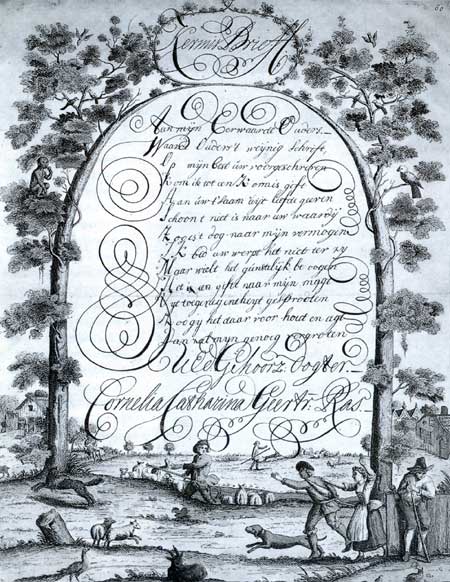 60
Kermis Brief
Aan mijn Eerwaarde Ouders.
Waarde Ouders't weijnig schrift,
Op mijn best uw voorgeschreven
Kom ik tot een Kermis gift
Aan uw t'saam uijt liefde geeven
Schoon t niet is naar uw waardij
Zo is't dog naar mijn vermogen
Ik bid uw werpt het niet ter zij
Maar wielt het gunstelijk be oogen
Het is een gift naar mijn magt
uijt gesprooten
Zo gij het daar voor houd en agt
Dan zal mijn genoeg vergrooten
UEd Gehoorz. Dogter.
Cornelia Catharina Geertr. Ras.